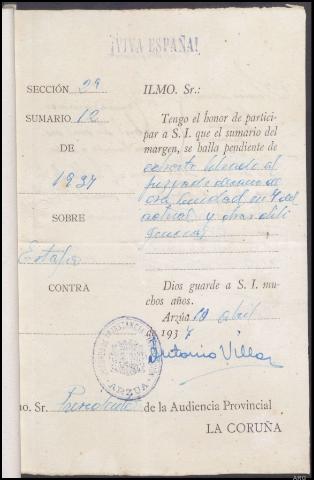 ¡VIVA ESPAÑA!
SECCIÓN 2ª
ILMO. Sr.:
SUMARIO 12
DE
1937
SOBRE
Estafa
CONTRA
Tengo el honor de partici-
par a S. I. que el sumario del
margen, se halla pendiente de
exhorto librado al
juzgado decano de
esa Ciudad en 7 del
actual y otras dili
gencias
Dios guarde a S. I. mu-
chos años.
Arzúa 10 abril
de 1937
Antonio Villar
ARZUA
mo. Sr. Presidente de la Audiencia Provincial
LA CORUÑA
ARG